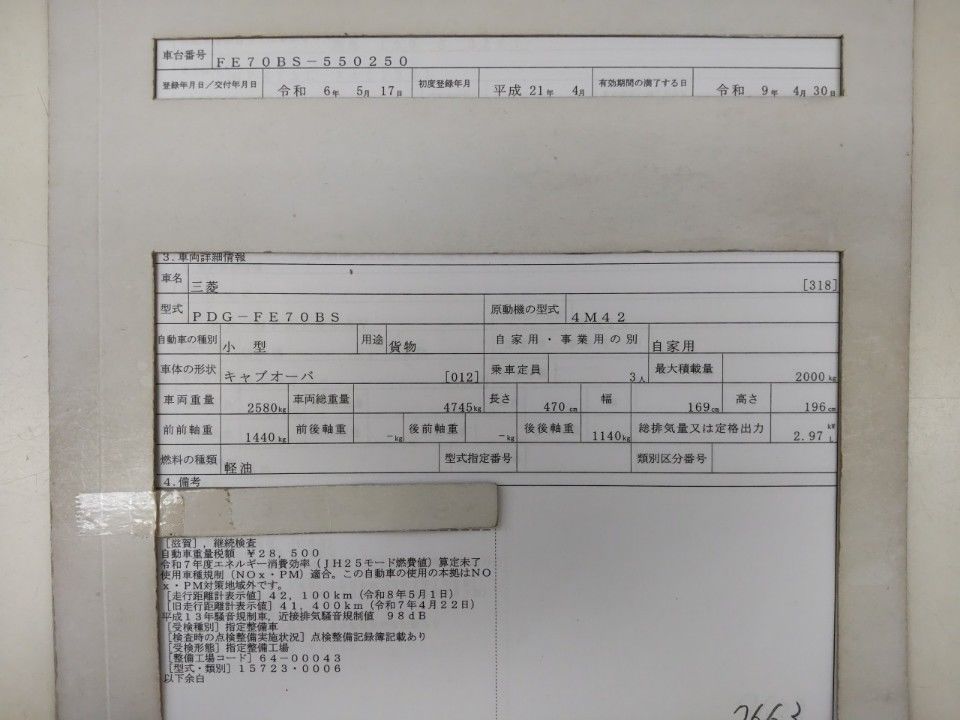 車台番号 FE70BS-550250
登録年月日/交付年月日 令和 6年 5月 17日 初度登録年月 平成 21年 4月 有効期間の満了する日 令和 9年 4月 30日
3.車両詳細情報
車名 三菱 [318]
型式 PDG-FE70BS 原動機の型式 4M42
自動車の種別 小 型 用途 貨物 自家用・事業用の別 自家用
車体の形状 キャブオーバ [012] 乗車定員 3人 最大積載量 2000kg
車両重量 2580kg 車両総重量 4745kg 長さ 470cm 幅 169cm 高さ 196cm
前前軸重 1440kg 前後軸重 -kg 後前軸重 -kg 後後軸重 1140kg 総排気量又は定格出力 2.97 kW L
燃料の種類 軽油 型式指定番号 類別区分番号
4.備考
[滋賀],継続検査
自動車重量税額 ¥28,500
令和7年度エネルギー消費効率(JH25モード燃費値)算定未了
使用車種規制(NOx・PM)適合。この自動車の使用の本拠はNO
x・PM対策地域外です。
[走行距離計表示値]42,100km(令和8年5月1日)
[旧走行距離計表示値]41,400km(令和7年4月22日)
平成13年騒音規制車,近接排気騒音規制値 98dB
[受検種別]指定整備車
[検査時の点検整備実施状況]点検整備記録簿記載あり
[受検形態]指定整備工場
[整備工場コード]64-00043
[型式・類別]15723・0006
以下余白